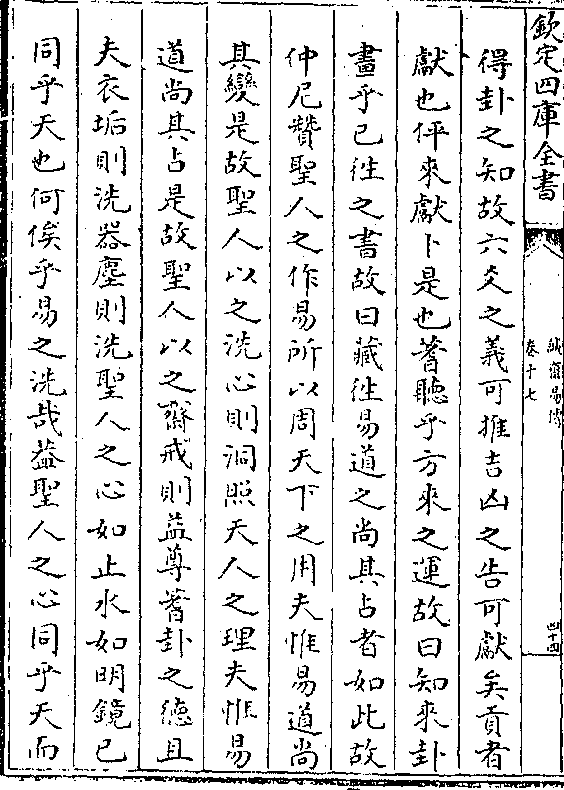 欽定四庫全書
誠齋易傳
卷十七
四十四
得卦之知故六爻之義可推吉凶之告可獻矣貢者
獻也伻來獻卜是也蓍聽乎方來之運故曰知來卦
畫乎已徃之書故曰藏徃易道之尚其占者如此故
仲尼贊聖人之作易所以周天下之用夫惟易道尚
其變是故聖人以之洗心則洞照天人之理夫惟易
道尚其占是故聖人以之齋戒則益尊蓍卦之德且
夫衣垢則洗器塵則洗聖人之心如止水如明鏡已
同乎天也何俟乎易之洗哉葢聖人之心同乎天而